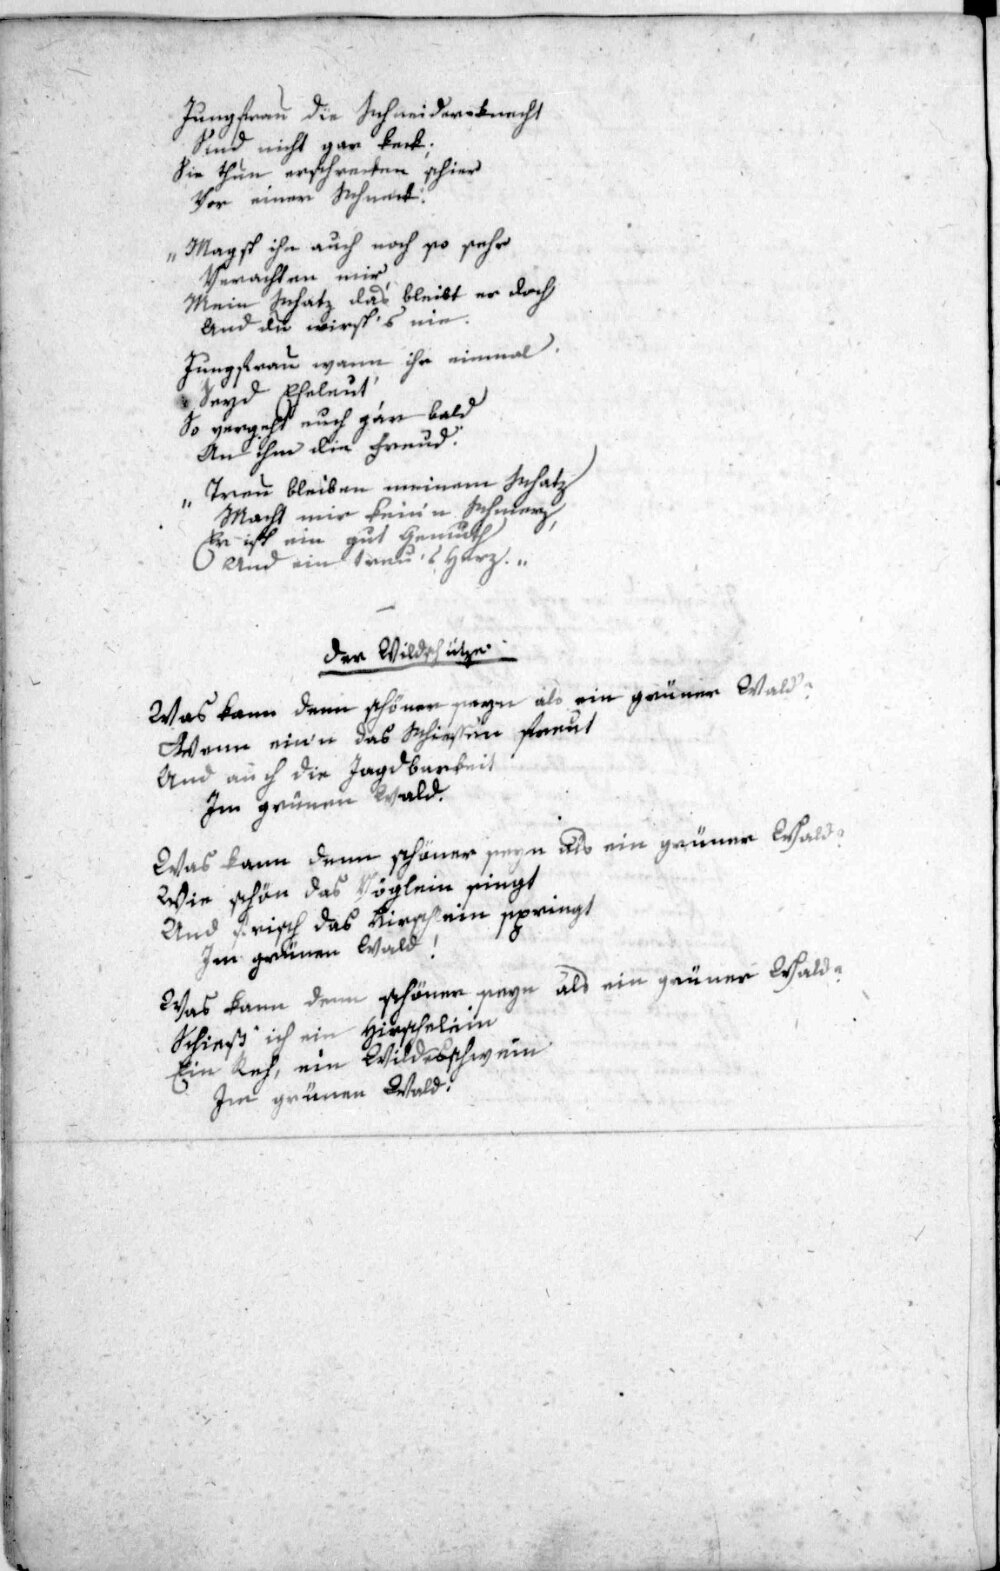 Jungfrau die Schneidersknecht
Sind nicht gar keck;
Sie thun erschrecken schier
Vor einer Schneck.
„Magst ihn auch noch so sehr
Verachten mir,
Mein Schatz das bleibt er doch
Und du wirst's nie.
Jungfrau wann ihr einmal
Seyd Eheleut'
So vergeht euch gar bald
An ihm die Freud.
„Treu bleiben meinem Schatz
Macht mir kein'n Schmerz,
Er ist ein gut Gemüth
Und ein treu's Herz.„
Der Wildschütze.
Was kann denn schöner seyn als ein grüner Wald?
Wenn ein'n das Schießen freut
Und auch die Jagdbarkeit
Im grünen Wald.
Was kann denn schöner seyn als ein grüner Wald?
Wie schön das Vöglein singt
Und frisch das Hirschlein springt
Im grünen Wald!
Was kann denn schöner seyn als ein grüner Wald?
Schieß' ich ein Hirschelein
Ein Reh, ein Wildesschwein
Im grünen Wald.